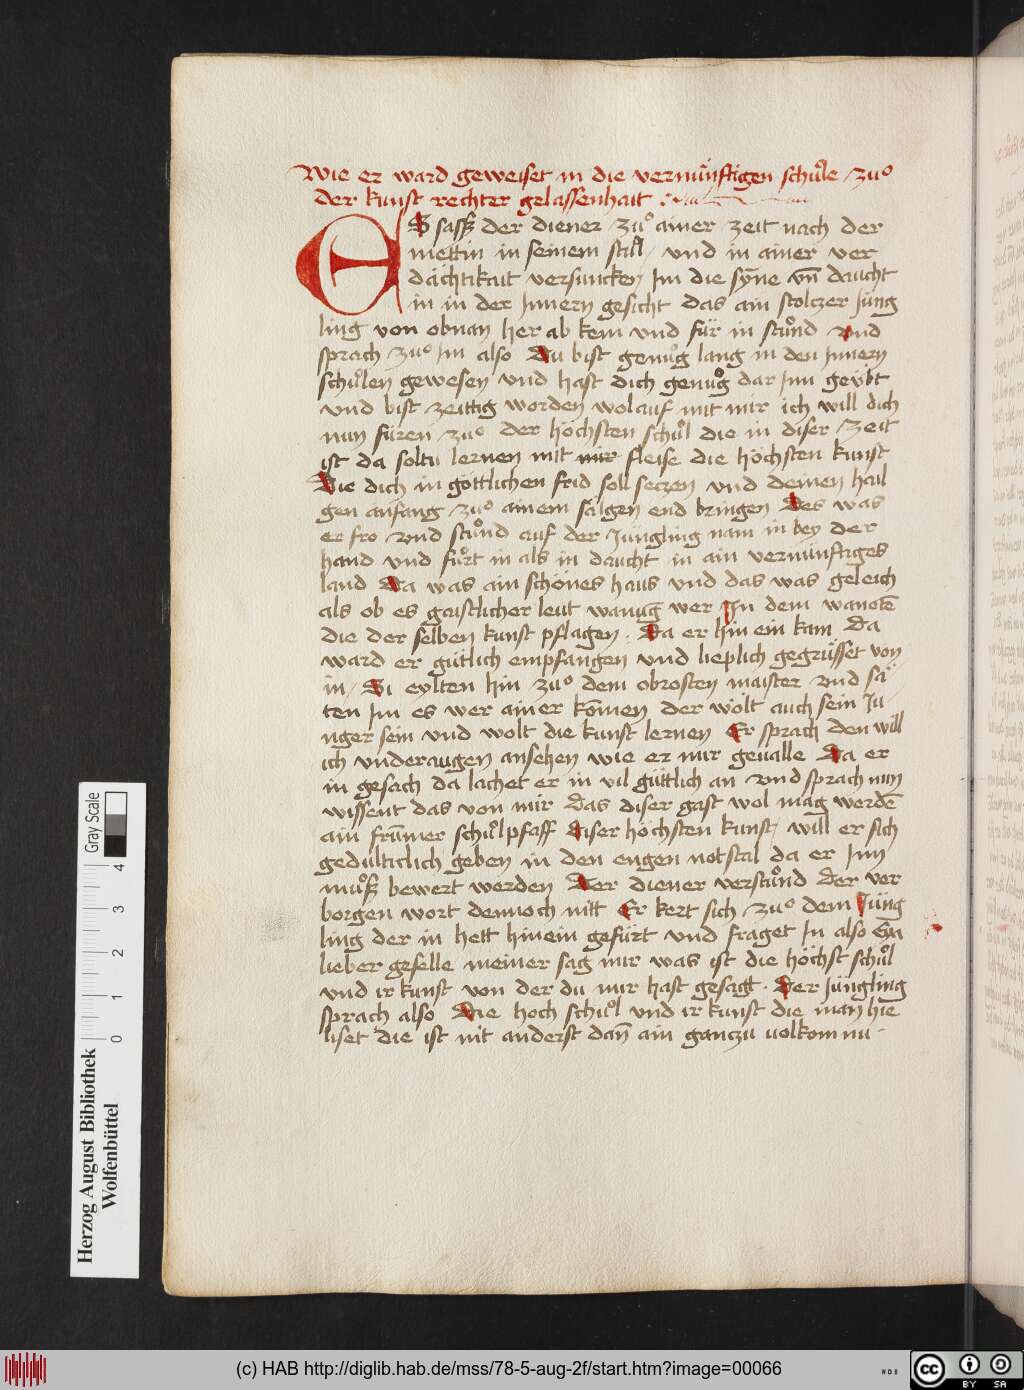 Wie er ward geweiset in die vernünftigen schůle zuͦ
der kunst rechter gelassenhait
ES sasß der diener zuͦ ainer zeit nach der
mettin in seinem stůl / und in ainer ver
dächtikait versuncken Im die syne vn̄ daucht
in in der Innern gesicht das ain stolczer Jüng
ling von obnan her ab kem und für in stůnd Und
sprach zuͦ Im also Du bist genůg lang in den Innern
schůlen gewesen und hast dich genůg dar Inn geübt
und bist zeittig worden wol auf mit mir ich will dich
nun füren zuͦ der höchsten schůl die in diser zeit
ist da soltu lernen mit fleise die höchsten kunst
Die dich in göttlichen frid soll seczen und deinen hail
gen anfang zuͦ ainem sälgen end bringen Des was
er fro und stůnd auf der Jüngling nam in bey der
hand und fůrt in als in daucht in ain vernünftiges
land Da was ain schönes haus und das was geleich
als ob es gaistlicher leut wanūg wer In dem wanotē
die der selben kunst pflagen . Da er hin ein kam Da
ward er gütlich empfangen und lieplich gegrüsset von
in / Si eylten hin zuͦ dem obrosten maister und sa
ten Im es wer ainer komen der wölt auch sein Ju
nger sein und wolt die kunst lernen Er sprach den will
ich underaugen ansehen wie er mir geualle Da er
in gesach da lachet er in vil güttlich an und sprach nun
wissent das von mir das diser gast wol mag werdē
ain frumer schůlpfaff diser höchsten kunst / will er sich
gedulticlich geben in den engen notstal da er Inn
můsß bewert werden Der diener verstůnd der ver
borgen wort dennoch nitt Er kert sich zuͦ dem Jüng
ling der in hett hinein gefürt und fraget In also Ein
lieber geselle meiner sag mir was ist die höchst schůl
und ir kunst von der du mir hast gesagt . Der Jüngling
sprach also Die hoch schůl und ir kunst die man hie
liset die ist nit anderst dan̄ ain ganczu uolkomnu
Herzog August Bibliothek
Wolfenbüttel
0 1 2 3 4
Gray Scale
(c) HAB http://diglib.hab.de/mss/78-5-aug-2f/start.htm?image=00066
WDB
cc BY SA